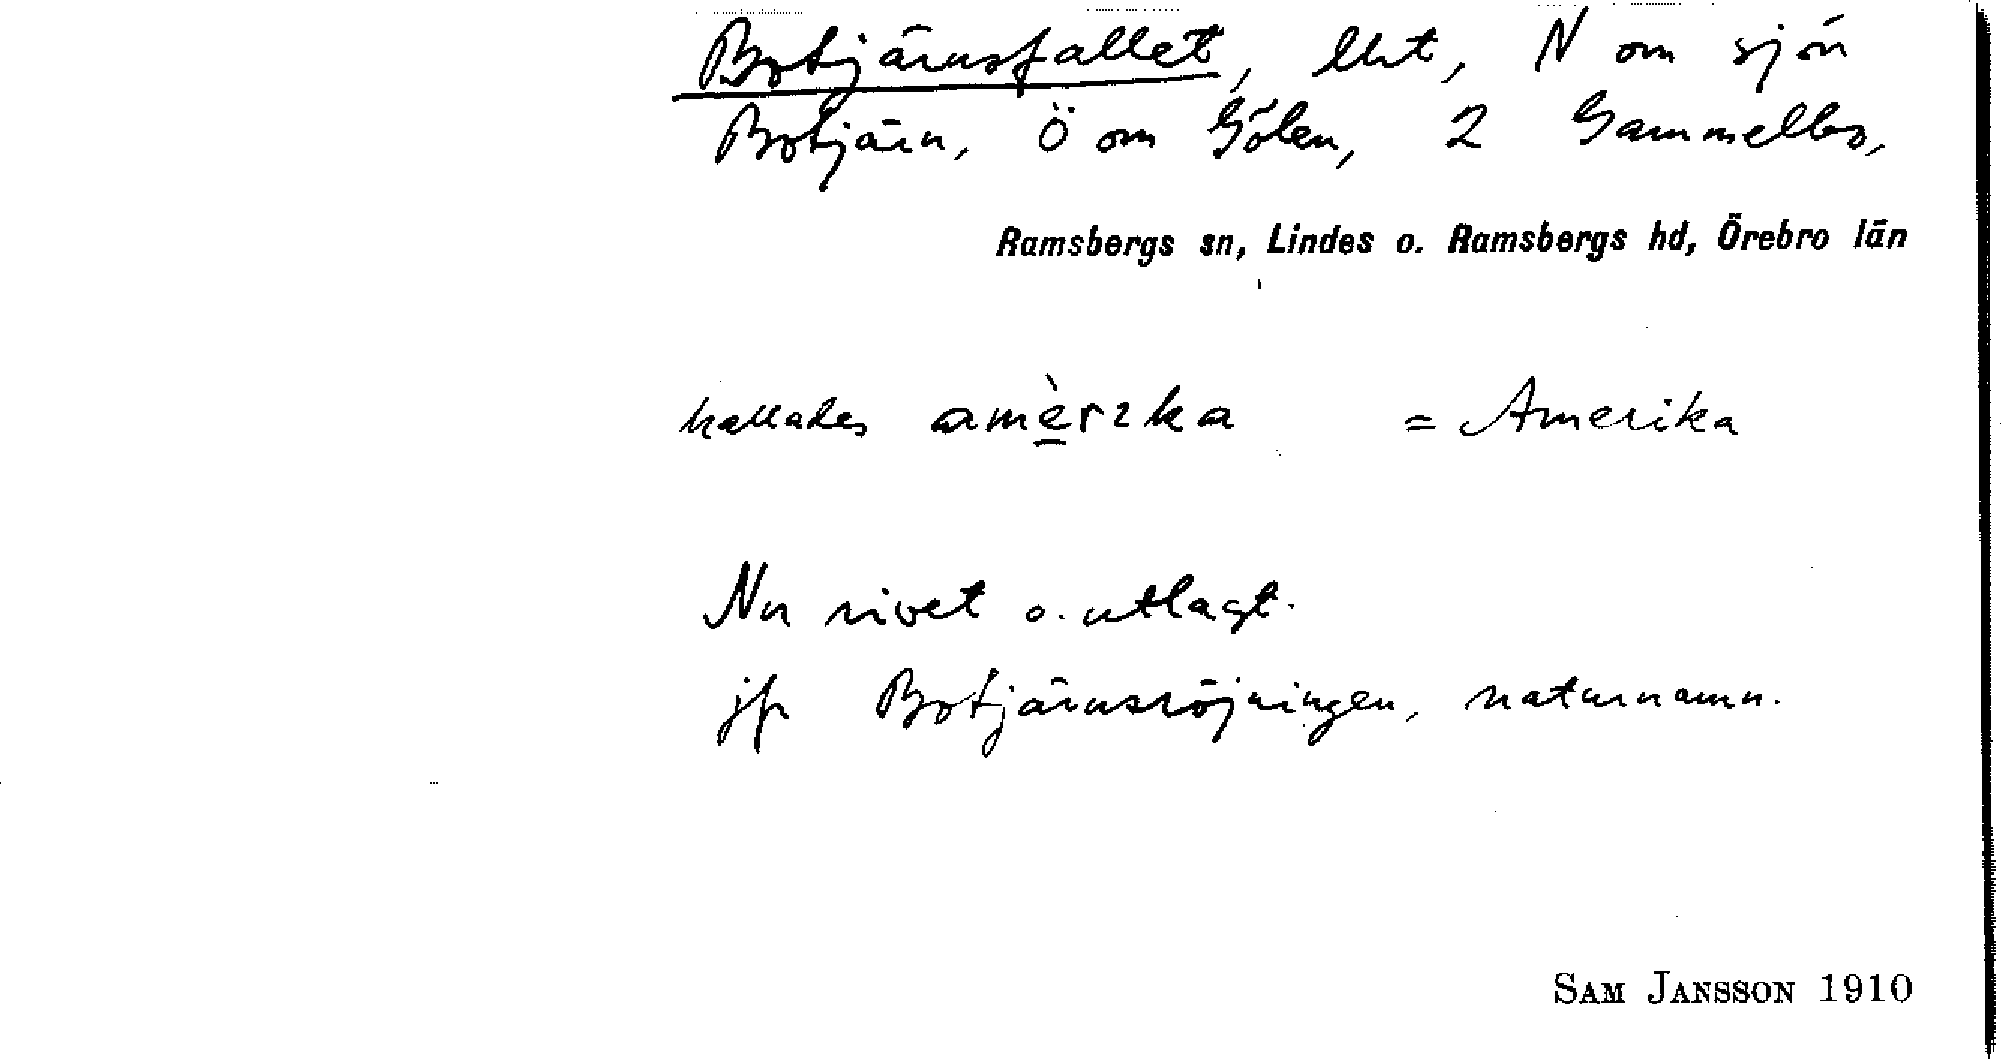 Botjärnsfallet, lht, N om sjön
Botjärn, Ö om Gölen, 2 Gammelbo,
Ramsbergs sn, Lindes o. Ramsbergs hd, Örebro län
kallades amèrıka = Amerika
Nu rivet o. utlagt.
jfr Botjärnsröjningen, naturnamn.
SAM JANSSON 1910